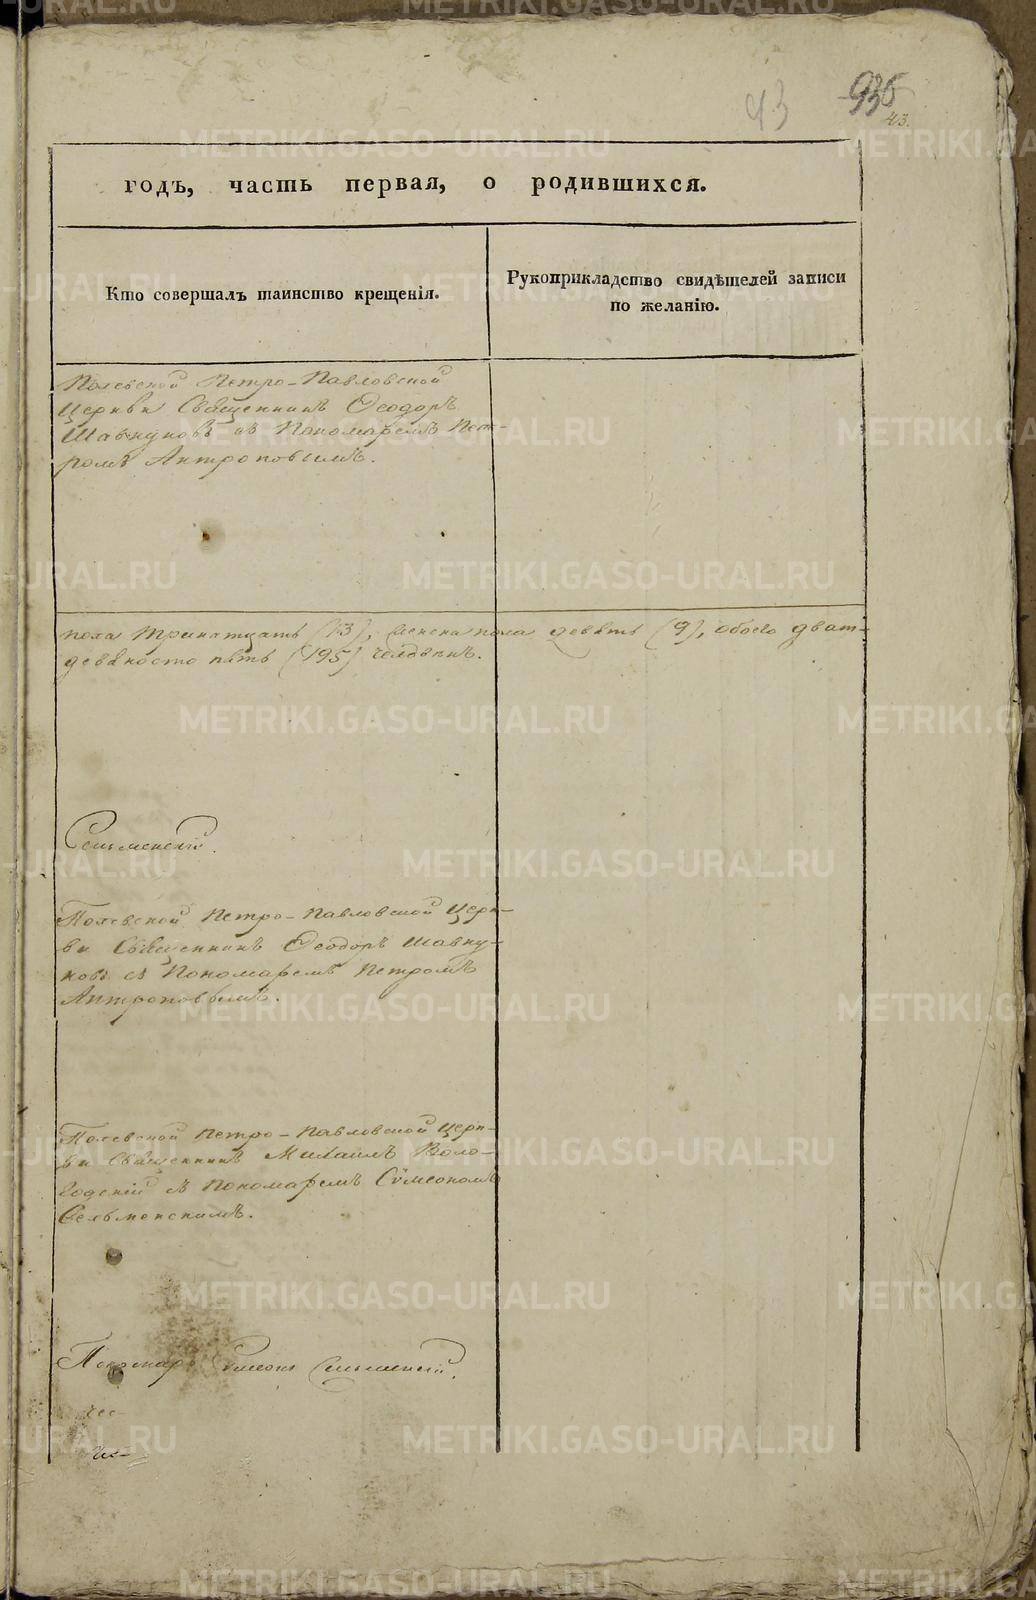 43
936
43.
годъ, часть первая, о родившихся.
Кто совершалъ таинство крещенія.
Рукоприкладство свидѣтелей записи
по желанію.
Полевской Петро-Павловской
Церкви Священникъ Ѳеодоръ
Шавкуновъ съ Пономаремъ Пет-
ромъ Антроповымъ.
пола тринатцать (13), женска пола девять (9), обоего дват-
девяносто пять (195) человѣкъ.
Сельменскій.
Полевской Петро-Павловской Церк-
ви Священникъ Ѳеодоръ Шавку-
новъ съ Пономаремъ Петромъ
Антроповымъ.
Полевской Петро-Павловской Церк-
ви Священникъ Михаилъ Воло-
годскій съ Пономаремъ Сѵмеономъ
Сельменскимъ.
Пономарь Симеонъ Сельменскій.
METRIKI.GASO-URAL.RU